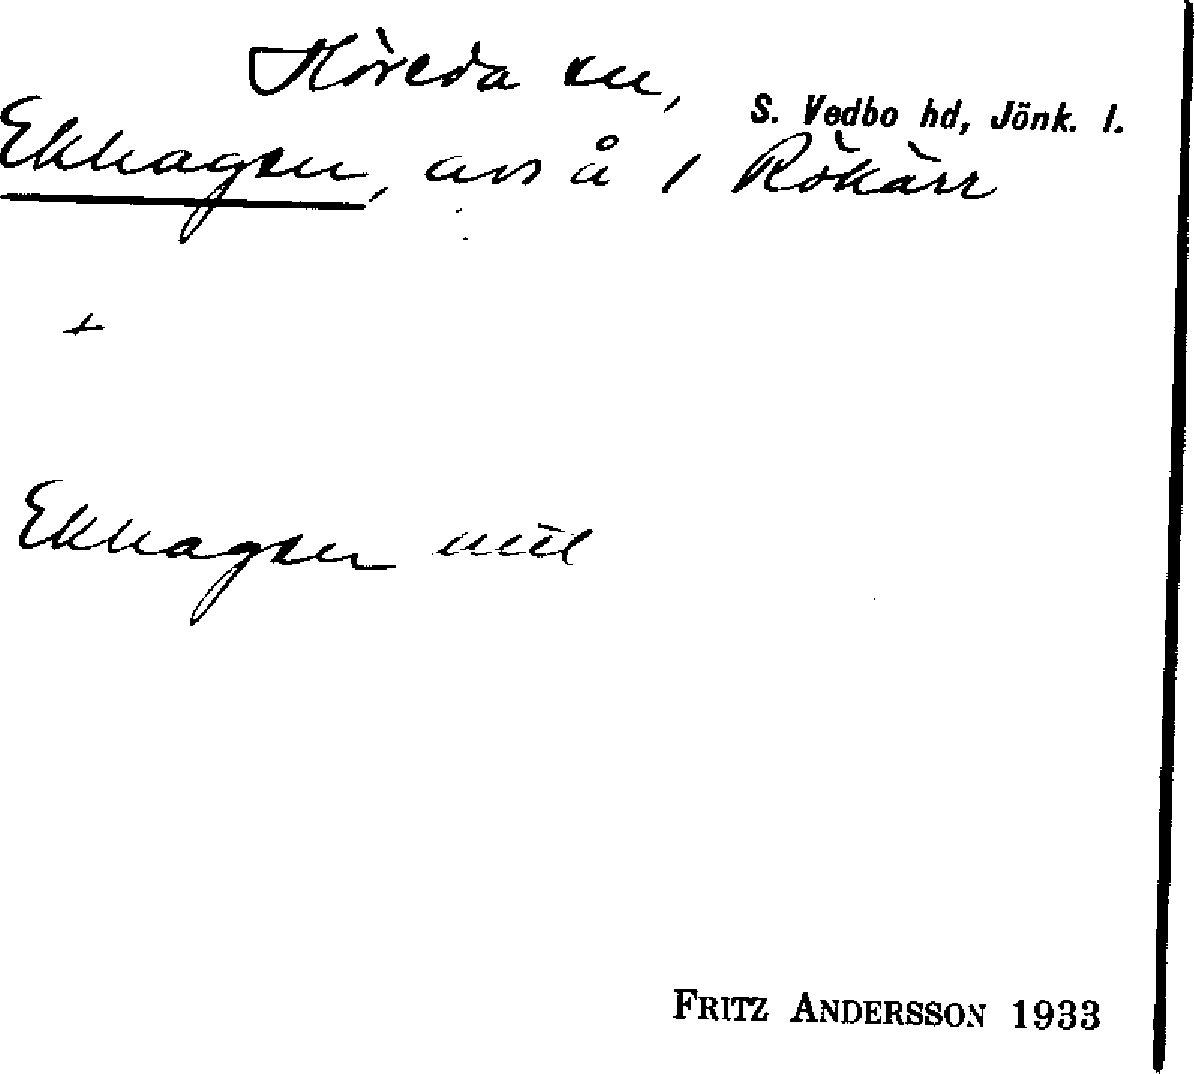 Höreda sn,
S. Vedbo hd, Jönk. l.
Ekhagen, avs å 1 Rökärr
+
Ekhagen
FRITZ ANDERSSON 1933